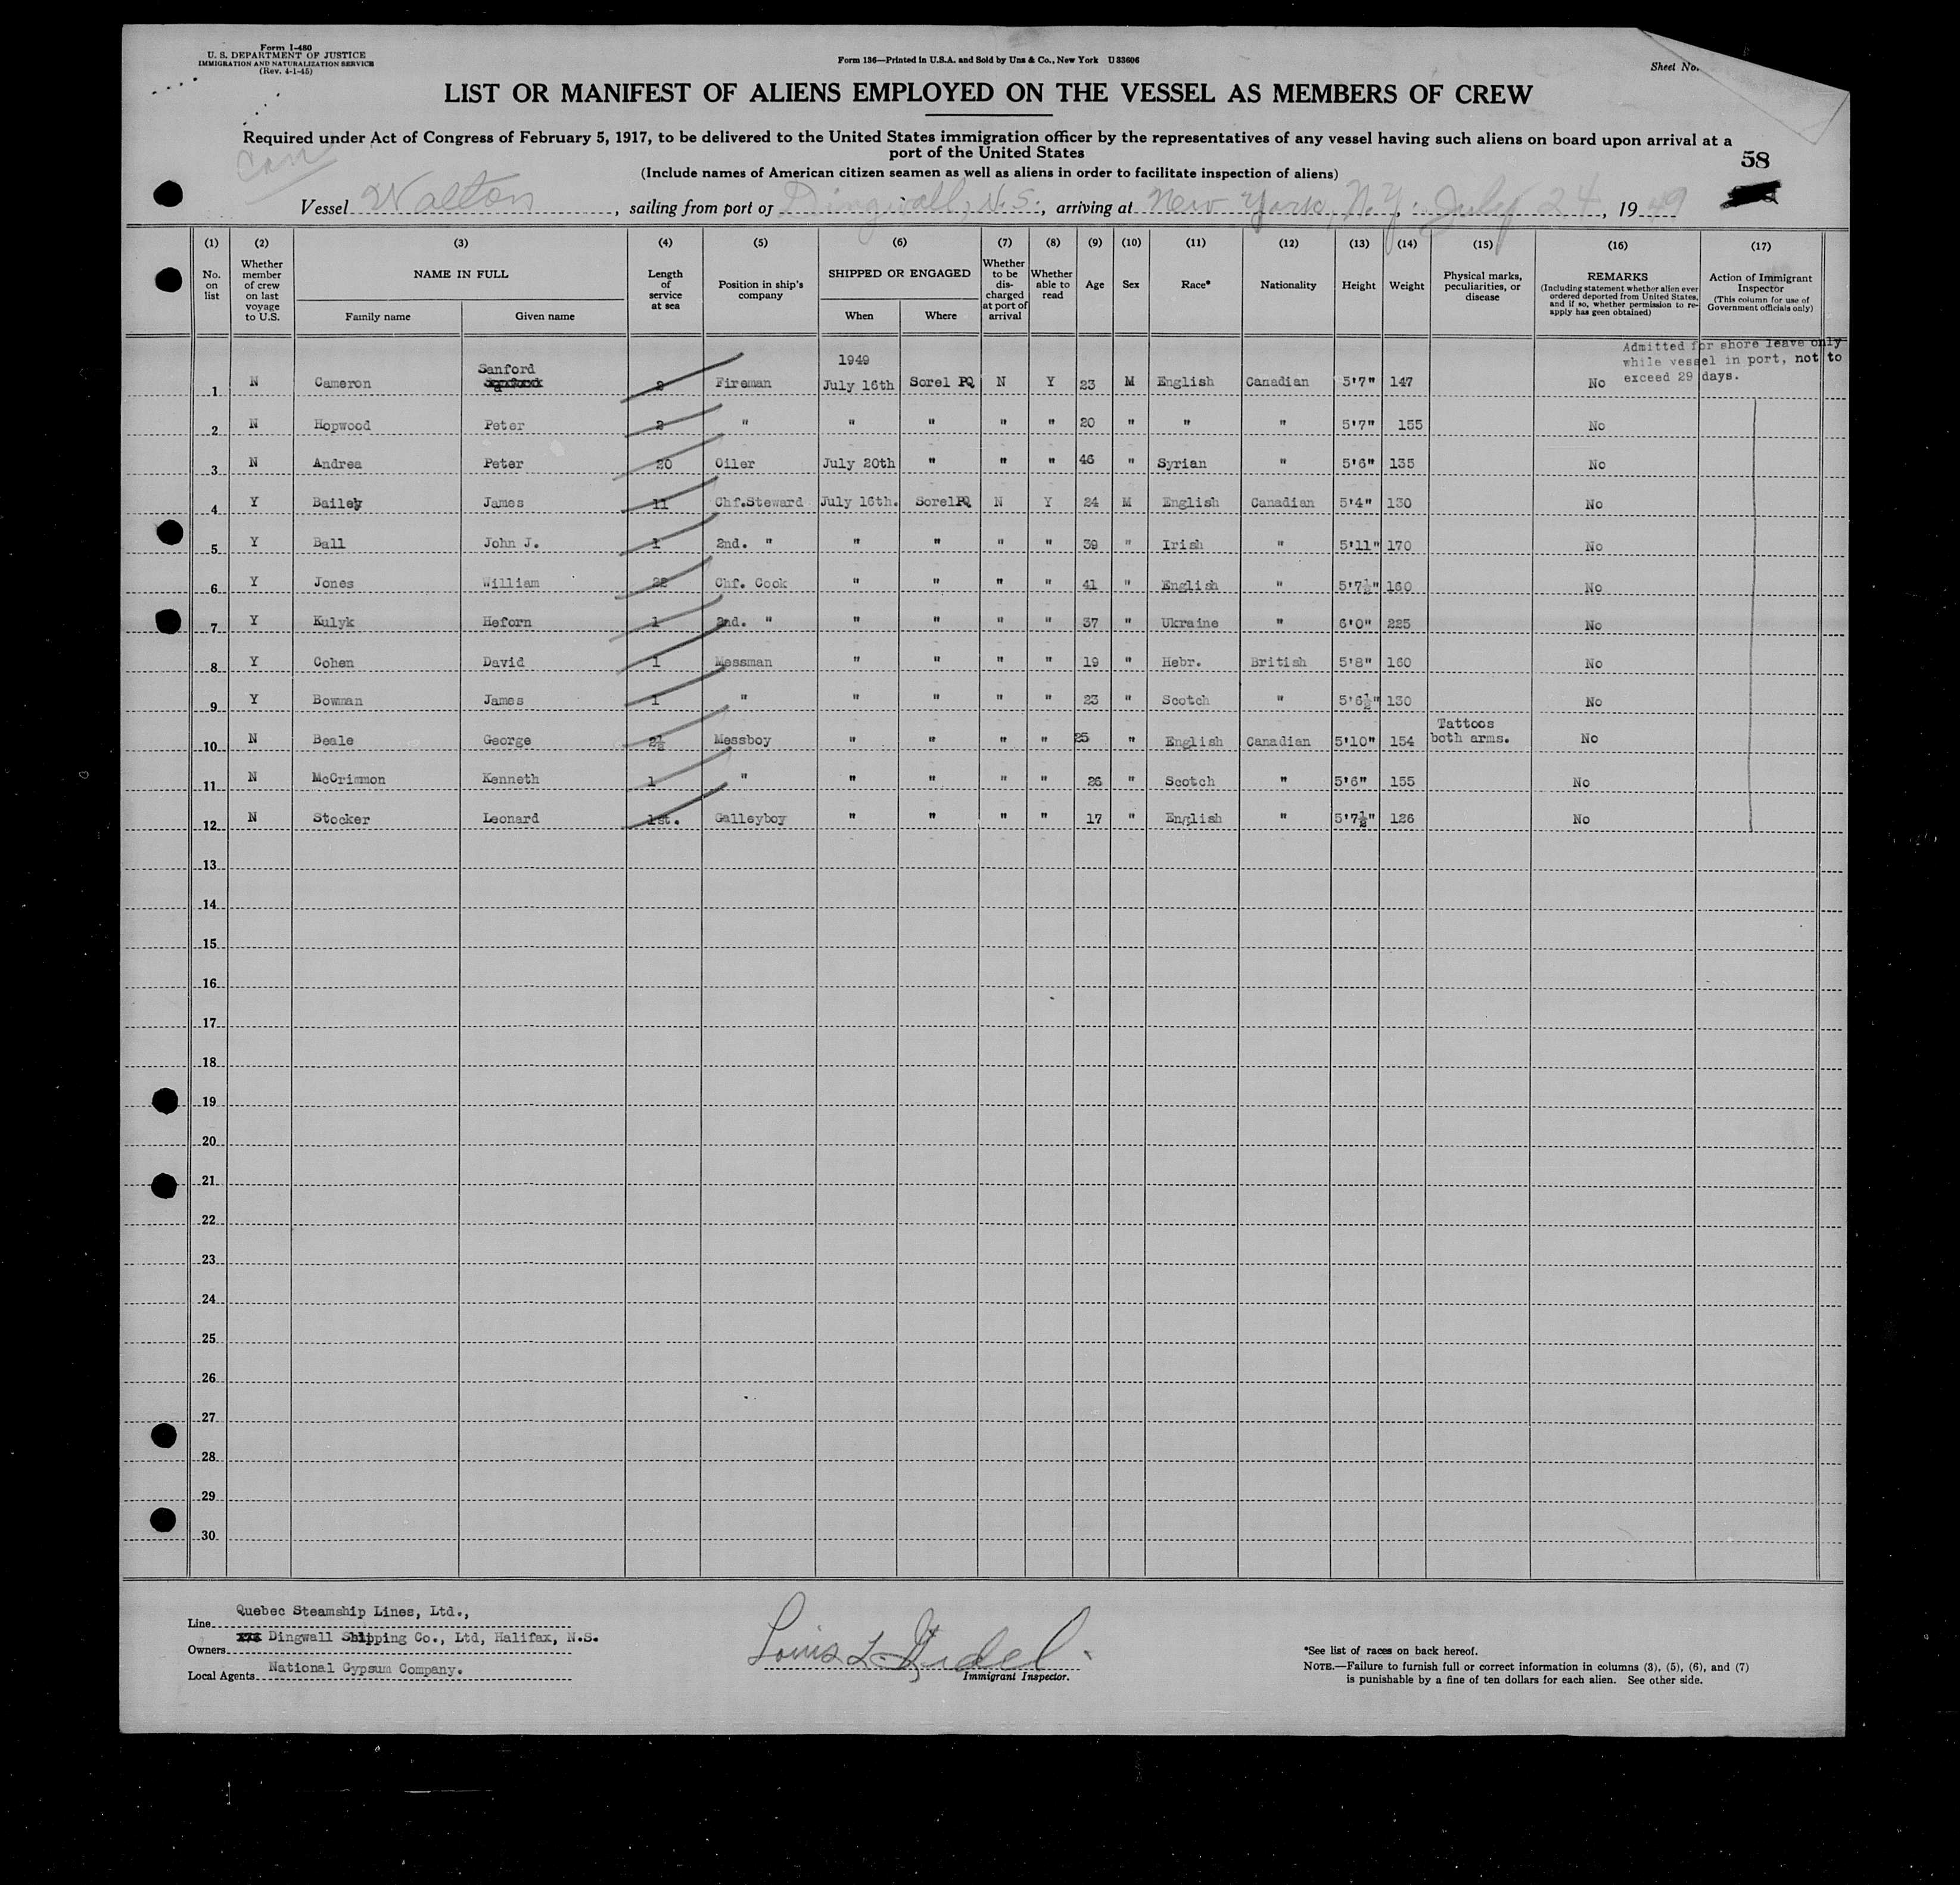 Form I-480
U. S. DEPARTMENT OF JUSTICE
IMMIGRATION AND NATURALIZATION SERVICE
(Rev. 4-1-45)
Form 136—Printed in U.S.A. and Sold by Unz & Co., New York U 33606
Sheet No.
LIST OR MANIFEST OF ALIENS EMPLOYED ON THE VESSEL AS MEMBERS OF CREW
Required under Act of Congress of February 5, 1917, to be delivered to the United States immigration officer by the representatives of any vessel having such aliens on board upon arrival at a
port of the United States
58
(Include names of American citizen seamen as well as aliens in order to facilitate inspection of aliens)
Vessel Walton, sailing from port of Dingwall, N.S., arriving at New York, N.Y., July 24, 1949
(1) (2) (3) (4) (5) (6) (7) (8) (9) (10) (11) (12) (13) (14) (15) (16) (17)
No. on list
Whether member of crew on last voyage to U.S.
NAME IN FULL
Family name Given name
Length of service at sea
Position in ship's company
SHIPPED OR ENGAGED
When Where
Whether to be discharged at port of arrival
Whether able to read
Age
Sex
Race*
Nationality
Height
Weight
Physical marks, peculiarities, or disease
REMARKS
(Including statement whether alien ever ordered deported from United States, and if so, whether permission to re-apply has geen obtained)
Action of Immigrant Inspector
(This column for use of Government officials only)
Admitted for shore leave only
while vessel in port, not to
exceed 29 days.
1949
1 N Cameron Sanford 2 Fireman July 16th Sorel PQ N Y 23 M English Canadian 5'7" 147 No
2 N Hopwood Peter 2 " " " " " 20 " " " 5'7" 155 No
3 N Andrea Peter 20 Oiler July 20th " " " 46 " Syrian " 5'6" 135 No
4 Y Bailey James 11 Chf.Steward July 16th. SorelPQ N Y 24 M English Canadian 5'4" 130 No
5 Y Ball John J. 1 2nd. " " " " " 39 " Irish " 5'11" 170 No
6 Y Jones William 22 Chf. Cook " " " " 41 " English " 5'7½" 160 No
7 Y Kulyk Heforn 1 2nd. " " " " " 37 " Ukraine " 6'0" 225 No
8 Y Cohen David 1 Messman " " " " 19 " Hebr. British 5'8" 160 No
9 Y Bowman James 1 " " " " " 23 " Scotch " 5'6½" 130 No
10 N Beale George 2½ Messboy " " " " 25 " English Canadian 5'10" 154 Tattoos both arms. No
11 N McCrimmon Kenneth 1 " " " " " 26 " Scotch " 5'6" 155 No
12 N Stocker Leonard 1st. Galleyboy " " " " 17 " English " 5'7½" 126 No
13
14
15
16
17
18
19
20
21
22
23
24
25
26
27
28
29
30
Line Quebec Steamship Lines, Ltd.,
Owners Dingwall Shipping Co., Ltd, Halifax, N.S.
Local Agents National Gypsum Company.
Louis L
Immigrant Inspector.
*See list of races on back hereof.
NOTE.—Failure to furnish full or correct information in columns (3), (5), (6), and (7)
is punishable by a fine of ten dollars for each alien. See other side.